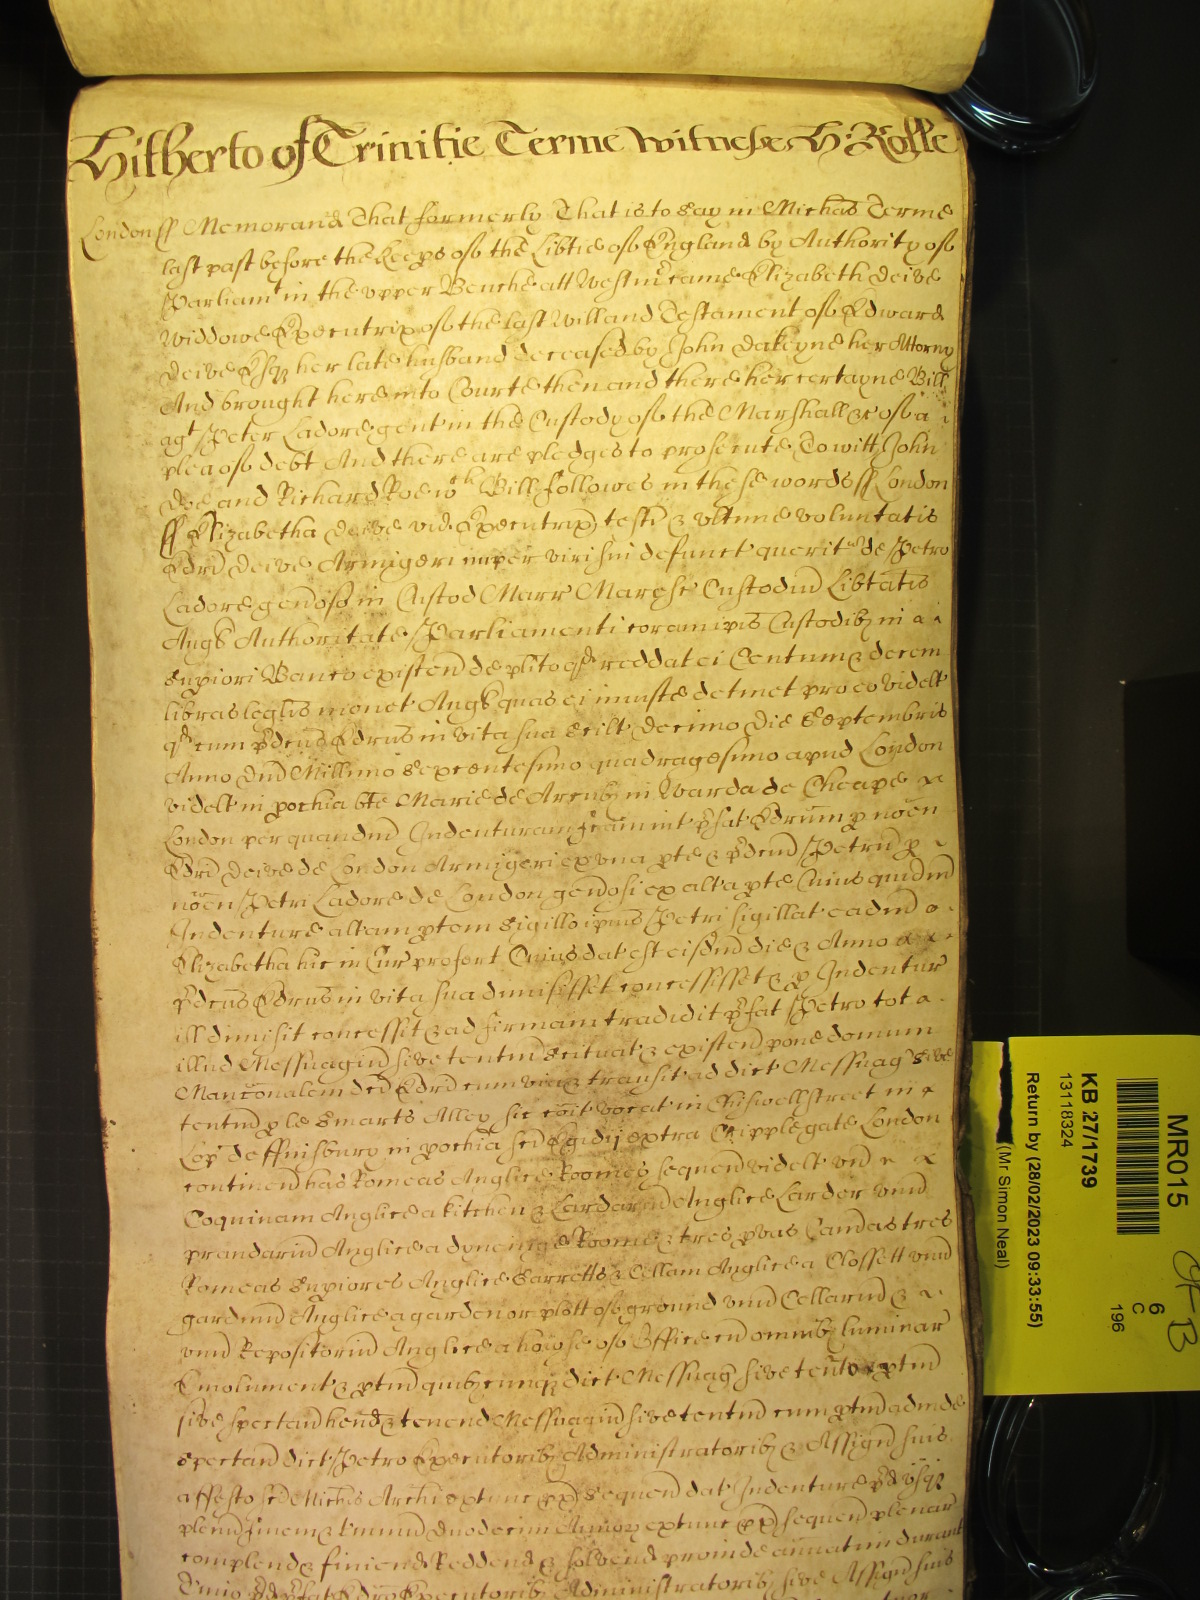 Hitherto of Trinitie Terme witnesse H: Rolle
London ss Memorand That formerly That is to say in Michas Terme
last past before the Keeps of the Libtie of England by Authority of
Parliamt in the upper Benche att Westmr came Elizabeth Deive
Widdowe Executrix of the last will and Testament of Edward
Deive Esqr her late husband deceased by John Dakeyne her Attorny
And brought here into Courte then and there her certayne Bill
agt Peter Ladore gent in the Custody of the Marshall &c of a
plea of debt And there are pledges to prosecute To witt John
Doe and Richard Roe wch Bill followes in these words ss London
ss Elizabetha Deive vid Executrix testi & ultime voluntatis
Edri Deive Armigeri nuper viri sui defunct querit de Petro
Ladore genoso in Custod Marr Maresc Custodud Libtatis
Angl Authoritate Parliamenti coram ipis Custodibz in
supiori Banco existen de plito qd reddat ei Centum & decem
libras leglis monet Angl quas ei iniuste detinet pro eo videlt
qd cum pdcus Edrus in vita sua scilt decimo die Septembris
Anno Dni Millimo sexcentesimo quadragesimo apud London
videlt in pochia bte Marie de Arcubz in Warda de Cheape
London per quandm Indenturam fcam int pfat Edrum p noen
Edri Deive de London Armigeri ex una pte & pdcm Petru p
noen Petri Ladore de London genosi ex alta pte Cuius quidm
Indenture altam ptem sigillo ipius Petri sigillat eadm
Elizabetha hic in Cur profert Cuius dat est eisdm die & Anno
pdcus Edrus in vita sua dimisisset concessisset & p Indentur
ill dimisit concessit & ad firmam tradidit pfat Petro tot
illud Messuagiu sive tentm scituat & existen pone domum
Manconalem dci Edri cum via & transit ad dict Messuag sive
tentm p le Smarts Alley sic coit vocat in Chiswellstreet in
Lop de ffinsbury in pochia sci Egidij extra Cripplegate London
continen has Romeas Anglice Roomes sequen videlt un
Coquinam Anglice a kitchen & Lardariu Anglice Larder unu
prandariu Anglice a dyneinge Roome & tres pvas Candas tres
Romeas supiores Anglice Garretts & Cellam Anglice a Clossett unu
gardinu Anglice a garden or plott of ground unu Cellariu &
unu Repositoriu Anglice a howse of Office cu omnibz luminar
Emolument & ptin quibzcunqz dict Messuag sive tento ptin
sive spectan hend & tenend Messuagiu sive tentm cum ptin adinde
spectan dict Petro Executoribz Administratoribz & Assign suis
a ffesto sci Michis Archi extunc px sequen dat Indenture pd usqz
plenu finem & tminu duodecim Annoz extunc px sequen plenar
complend & finiend Reddend & solvend proinde annatim durant
Tmio pd pfat Edro Executoribz Administratoribz sive Assign suis
MR015
KB 27/1739
13118324
Return by (28/02/2023 09:33:55)
(Mr Simon Neal)
6
C
196